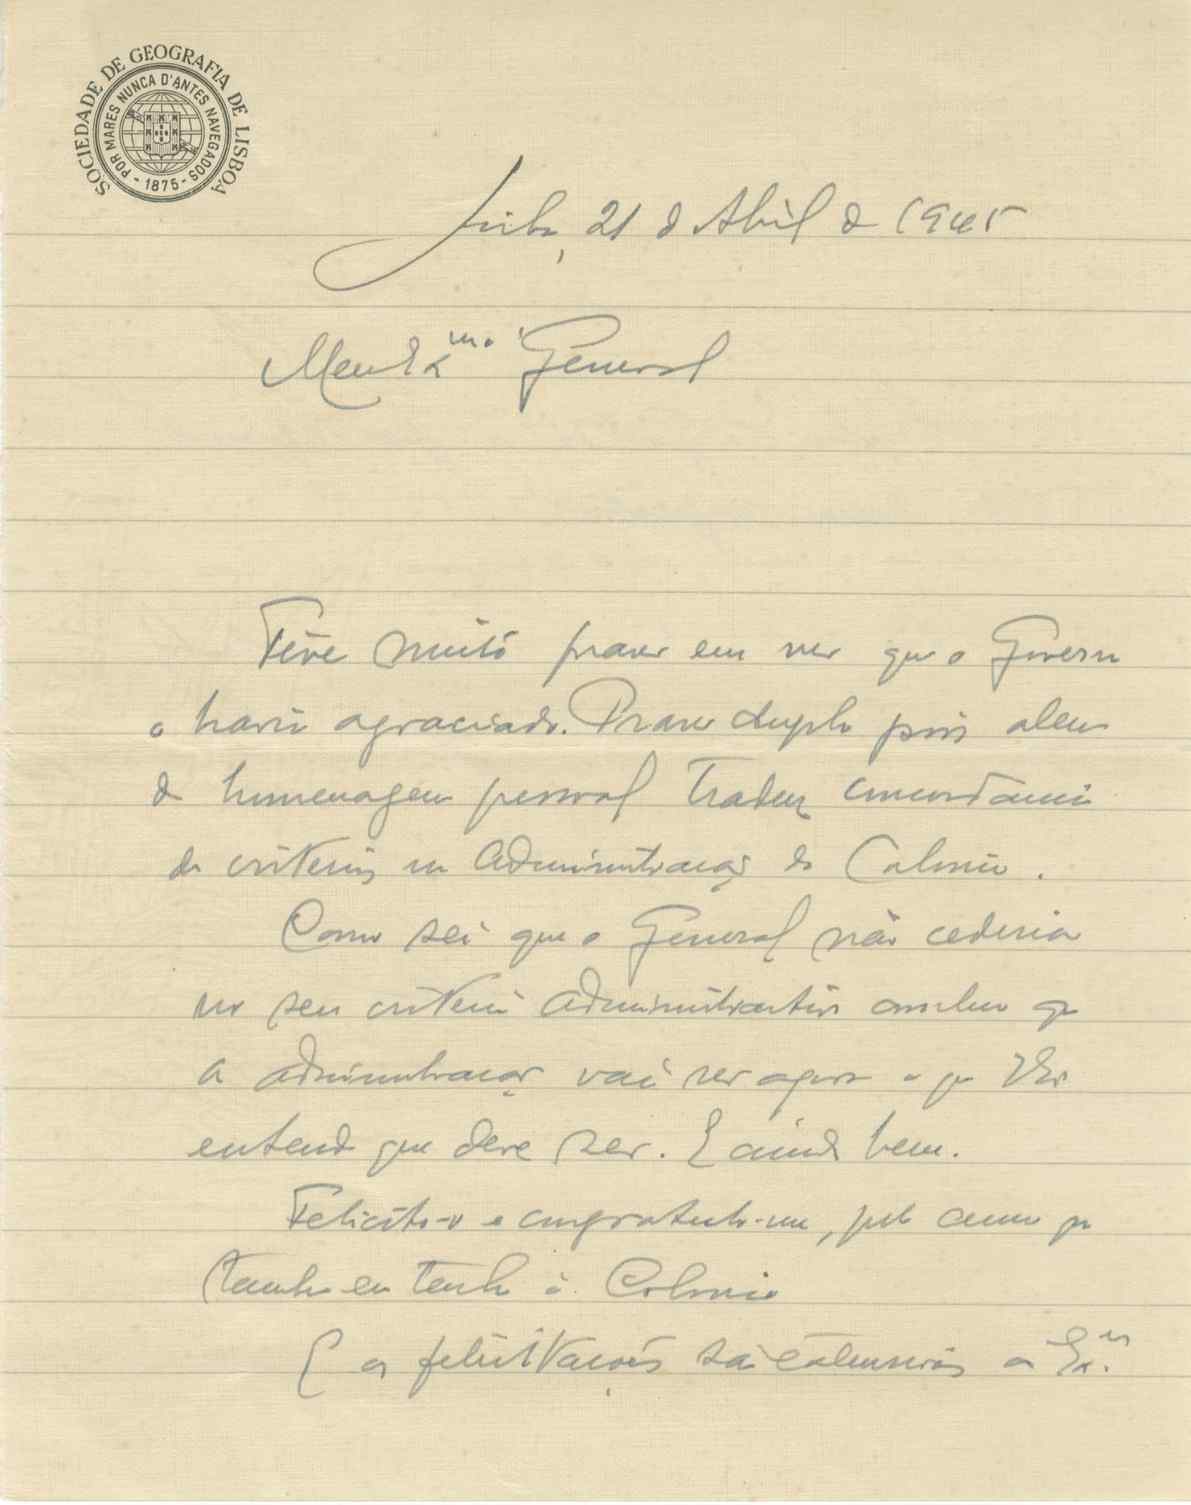 SOCIEDADE DE GEOGRAFIA DE LISBOA
POR MARES NUNCA D'ANTES NAVEGADOS
- 1875 -
21 de Abril de 1945
Meu Ex.mo General
Tive muito prazer em ver que o Governo
o havia agraciado. Prazer duplo pois alem
da homenagem pessoal traduz concordancia
de criterios na administração da Colonia.
Como sei que o General não cederia
no seu criterio administrativo concluo que
a administração vai ser agora o que
entende que deve ser. E ainda bem.
Felicito-o e congratulo-me, pelo amor que
tambem eu tenho á Colonia
E as felicitações são extensivas a Ex.